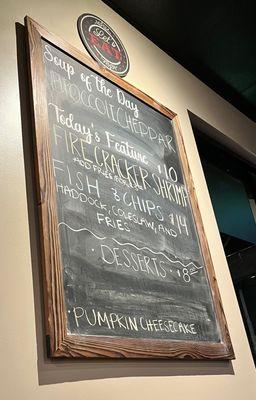 EAT
Soup of the Day
BROCCOLI CHEDDAR
Today's Feature
FIRECRACKER SHRIMP $10
ADD FRIES
FISH & CHIPS $14
HADDOCK, COLESLAW, AND
FRIES
· DESSERTS · $8 ·
· PUMPKIN CHEESECAKE